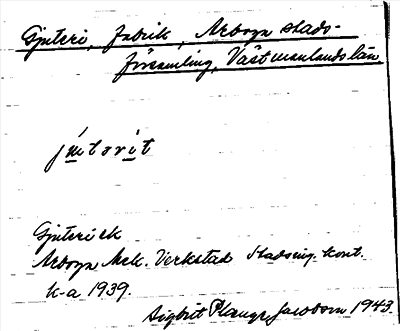 Gjuteri, Fabrik, Arboga stads-
församling, Västmanlands län
Gjuteri ek
Arboga Mek. Verkstad Stadsing. kont.
K-a 1939.
Sigbrit Plange Jacobson 1943.